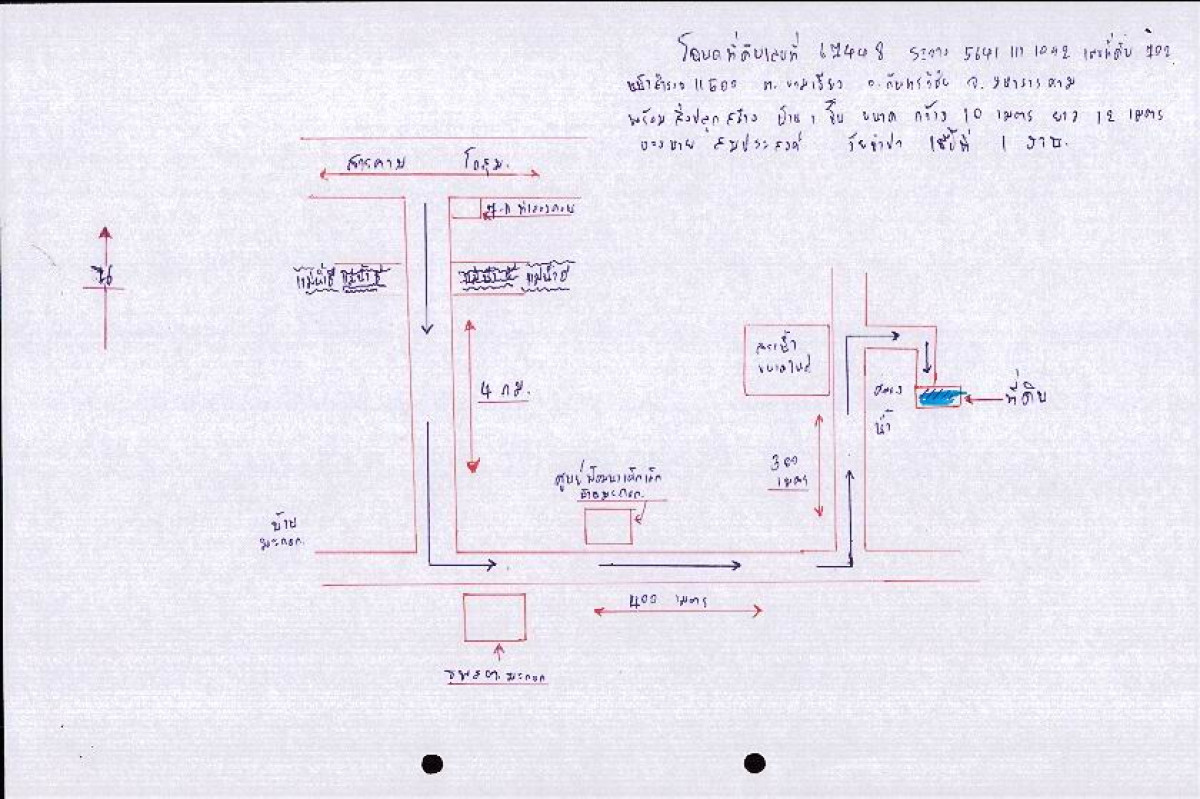 โฉนดที่ดินเลขที่ 67448 ระวาง 5641 III 1042 เลขที่ดิน 702
หน้าสำรวจ ต. ขามเรียง อ. กันทรวิชัย จ. มหาสารคาม
พร้อมสิ่งปลูกสร้าง บ้าน 1 ชั้น ขนาด กว้าง 10 เมตร ยาว 12 เมตร
ของนาย สมประสงค์ เนื้อที่ 1 งาน.
สารคาม โกสุม.
น
แม่น้ำชี แม่น้ำชี แม่น้ำชี แม่น้ำชี
4 กม.
สระน้ำ
ขนาดใหญ่
คลอง
น้ำ
ที่ดิน
300
เมตร
ศูนย์พัฒนาเด็กเล็ก
บ้านมะกอก.
บ้าน
มะกอก.
400 เมตร
รพสต. มะกอก